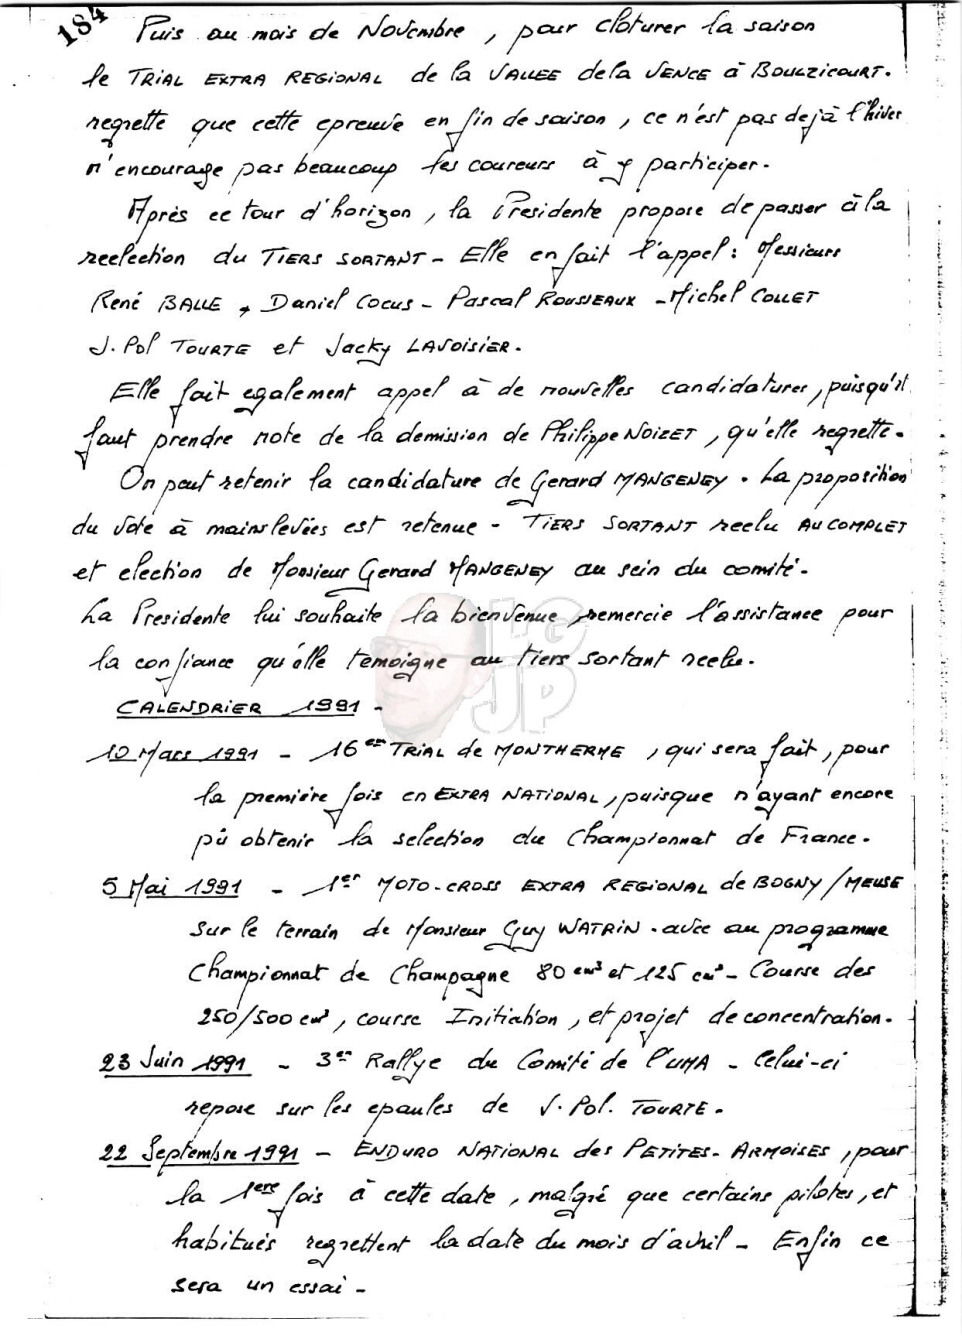 184
Puis au mois de Novembre, pour cloturer la saison
le TRIAL EXTRA REGIONAL de la VALLEE de la VENCE à BOULZICOURT.
regrette que cette epreuve en fin de saison, ce n'est pas dejà l'hiver
n'encourage pas beaucoup les coureurs à y participer.
Après ce tour d'horizon, la Presidente propose de passer à la
reelection du TIERS SORTANT - Elle en fait l'appel : Messieurs
René BALLE, Daniel Cocus - Pascal ROUSSEAUX - Michel COLLET
J. Pol TOURTE et Jacky LAVOISIER.
Elle fait egalement appel à de nouvelles candidatures, puisqu'il
faut prendre note de la demission de Philippe NOIZET, qu'elle regrette.
On peut retenir la candidature de Gerard MANGENEY. La proposition
du vote à mains levées est retenue - TIERS SORTANT reelu AU COMPLET
et election de Monsieur Gerard MANGENEY au sein du comité.
La Presidente lui souhaite la bienvenue, remercie l'assistance pour
la confiance qu'elle temoigne au tiers sortant reelu.
LG
JP
CALENDRIER 1991 -
10 Mars 1991 - 16 eme TRIAL de MONTHERME, qui sera fait, pour
la première fois en EXTRA NATIONAL, puisque n'ayant encore
pû obtenir la selection du Championnat de France.
5 Mai 1991 - 1er MOTO-CROSS EXTRA REGIONAL de BOGNY/MEUSE
sur le terrain de Monsieur Guy WATRIN. avec au programme
Championnat de Champagne 80 cm3 et 125 cm3 - Course des
250/500 cm3, course Initiation, et projet de concentration.
23 Juin 1991 - 3eme Rallye du Comité de l'UMA - Celui-ci
repose sur les epaules de J. Pol. TOURTE.
22 Septembre 1991 - ENDURO NATIONAL des PETITES-ARMOISES, pour
la 1ere fois à cette date, malgré que certains pilotes, et
habitués regrettent la date du mois d'avril - Enfin ce
sera un essai -